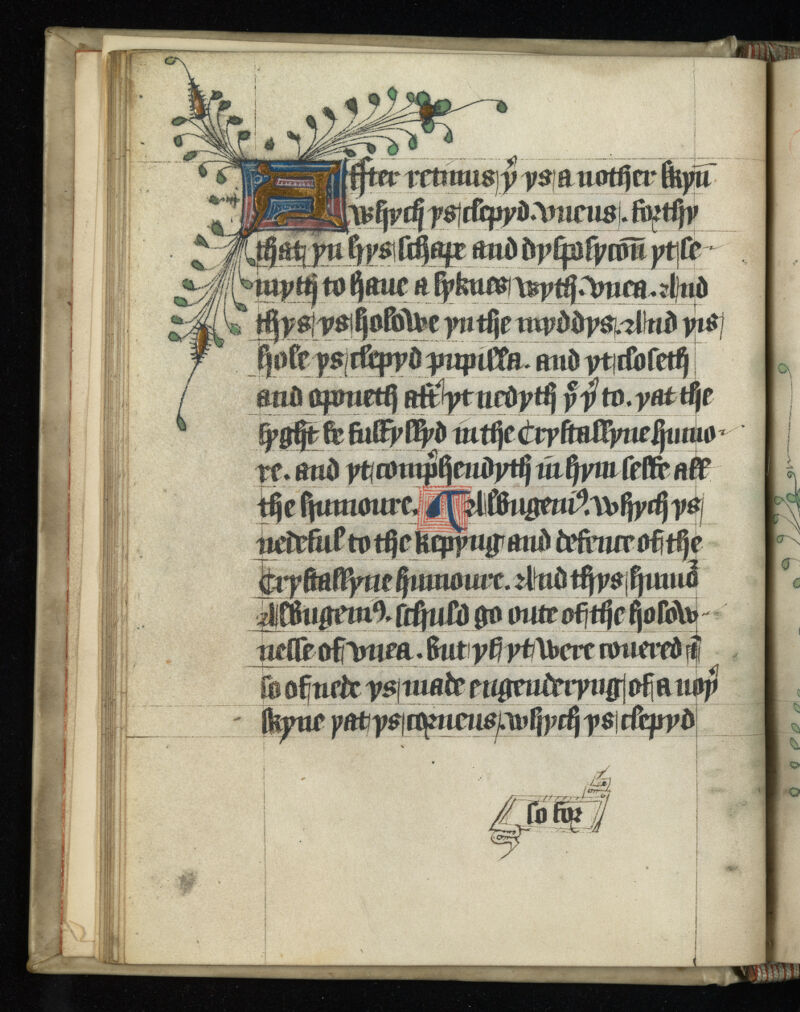 Affter retinus yͬ ys a nother skyn̄
whych ys clepyd. vneus. forthy
that yn hys schape and dysposycōn yt se
myth to haue a lyknes wyth. vuea. And
thys ys holowe yn the myddys. And yis
hole ys clepyd pupilla. and yt closeth
and oponeth aftͬ yt nedyth yͬ yͬ to. yat the
lyght be fulfyllyd in the Crystallyne humo
re. and yt compͬhendyth in hym selfe all
the humoure. Albugeniꝰ. whych ys
nedeful to the kepyng and defence of the
Crystallyne humoure. And thys humoͬ
Albugeniꝰ. schuld go oute of the holow
nesse of vuea. But yf yt were couered ī
so of nede ys made engenderyng of a noyͬ
skyne yat ys corneus. whych ys clepyd
so for